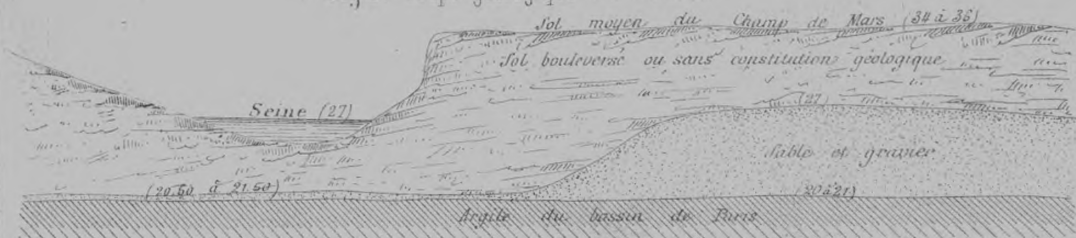 Sol moyen du Champ de Mars (34 à 36)
Sol bouleversé ou sans constitution géologique
Seine (27)
(27)
Sable et gravier
(20.50 à 21.50)
(20 à 21)
Argile du bassin de Paris